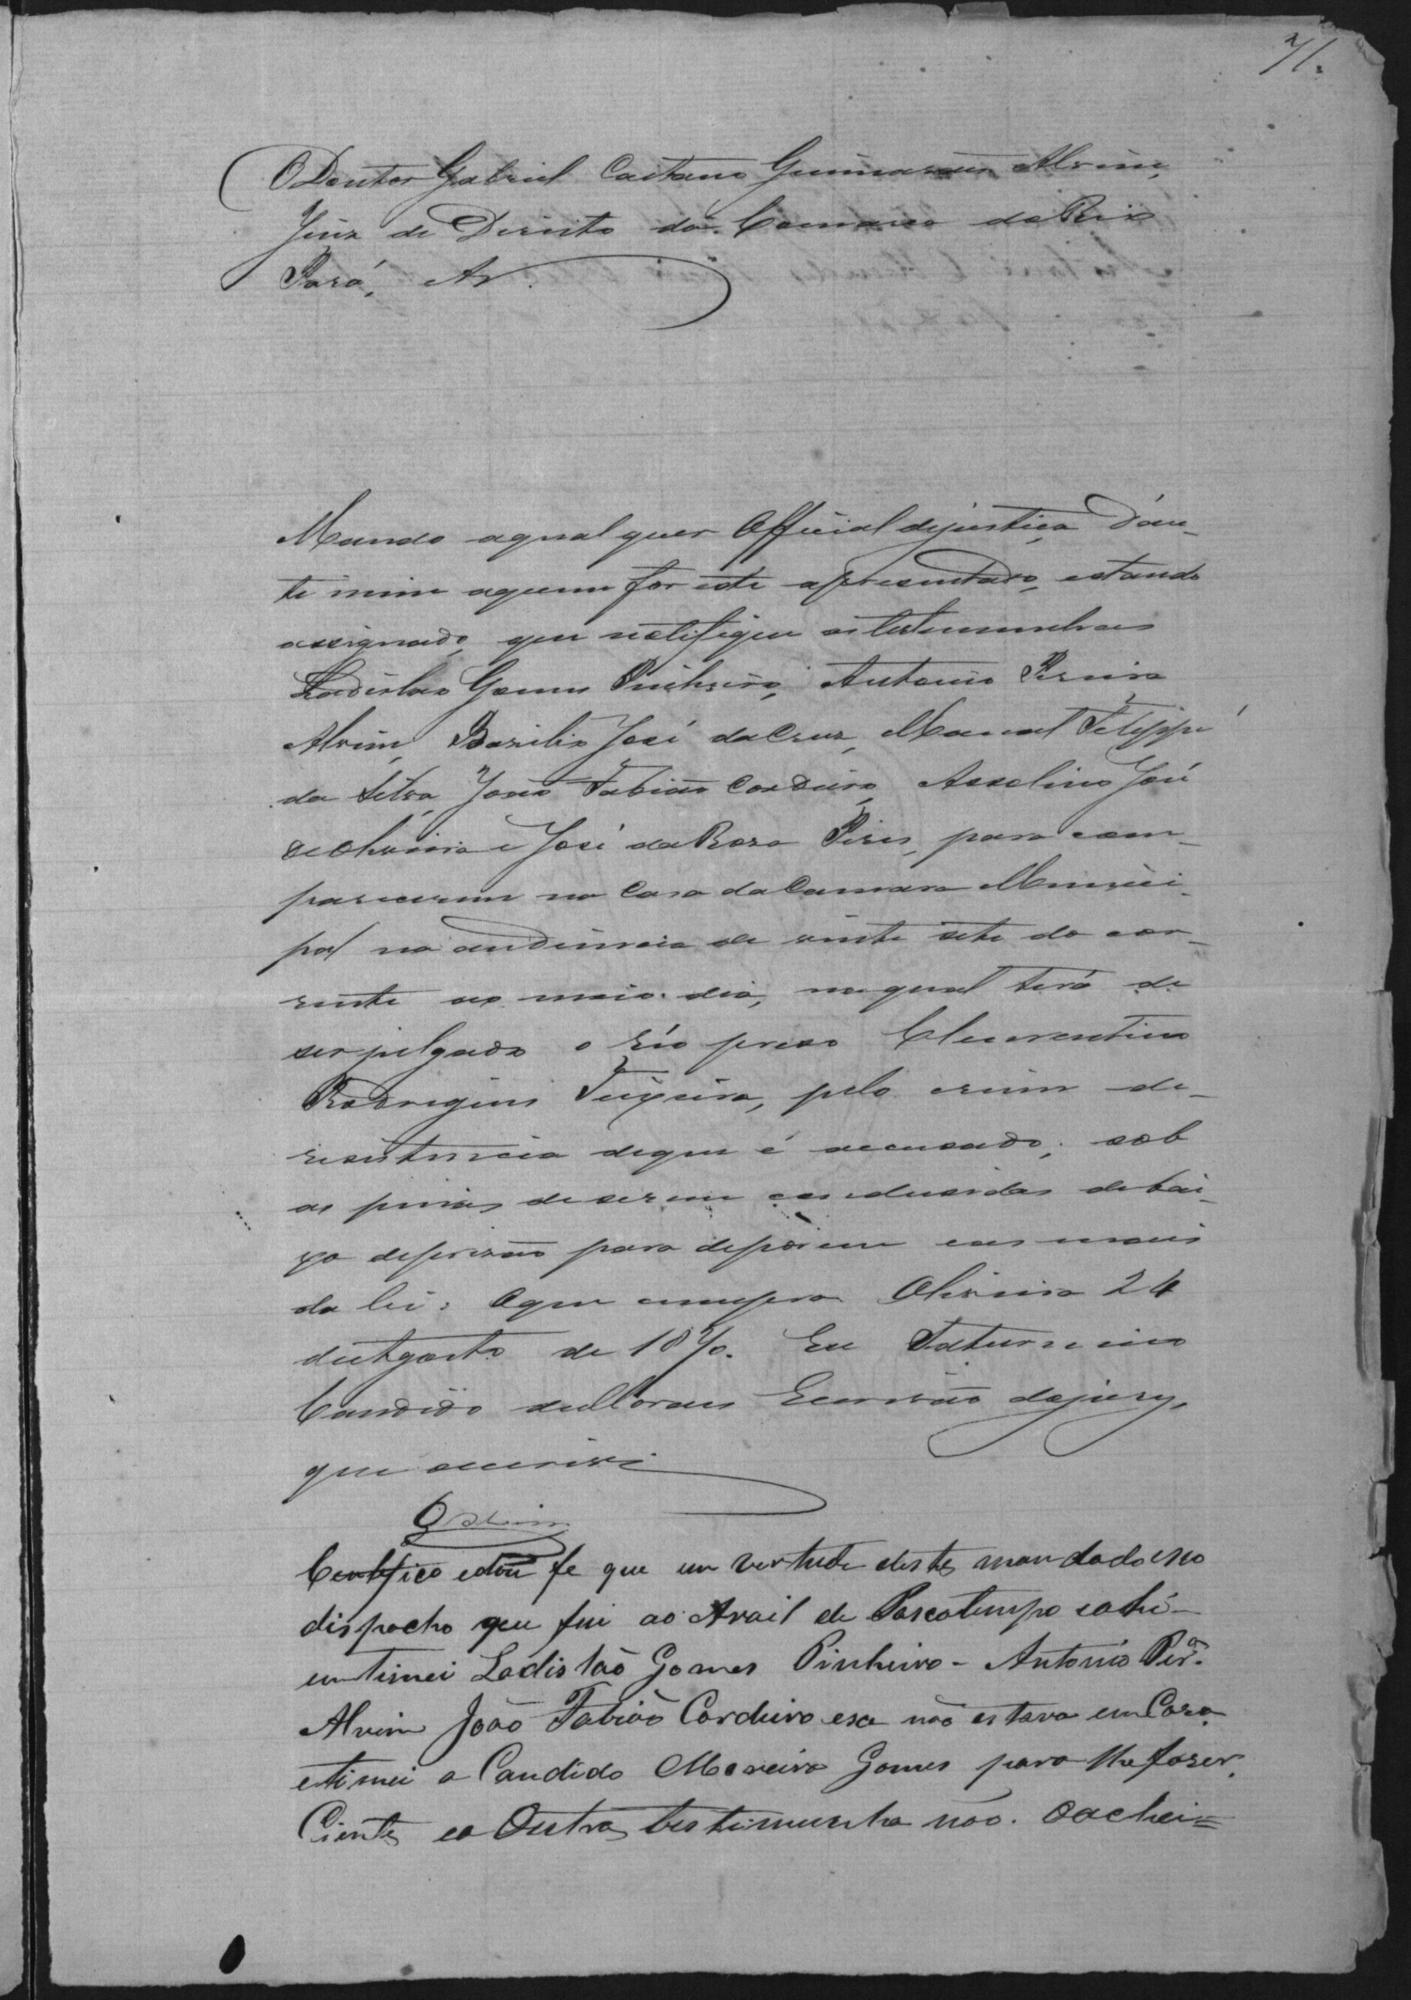 71.
O Doutor Gabriel Caetano Guimarães Alvim,
Juiz de Direito da Comarca do Rio
Pará, &
Mando a qualquer Official dejustiça d'an-
te mim aquem for este apresentado, estando
assignado, que notifique as testemunhas
Ladislao Gomes Pinheiro, Antonio Pereira
Alvim, Basilio José da Cruz, Manoel Felippe
da Silva, João Fabião Cordeiro, Asselino José
de Oliveira e José da Rosa Pires, para com-
parecerem na Casa da Camara Munici-
pal na audiencia de vinte sete do cor-
rente ao meio dia, na qual terá de
ser julgado o réo preso Clementino
Rodrigues Teixeira, pelo crime de
resistencia deque é accusado, sob
as penas de serem conduzidas debai-
xo deprizão para deporem eas mais
da lei: Oque cumpra Oliveira 24
deAgosto de 1870. Eu Saturnino
Candido deMoraes Escrivão dojury,
que escrevi
Certifico edou fe que em vertude deste mandado eseo
dispacho que fui ao Arail de Pascatempo eahi
entimei Ladislão Gomes Pinheiro - Antonio Per.ª
Alvim João Fabião Cordeiro esa não estava em Casa
etimei a Candido Moreira Gomes para lhe faser
Ciente ea Outra testimunha não. oachei=